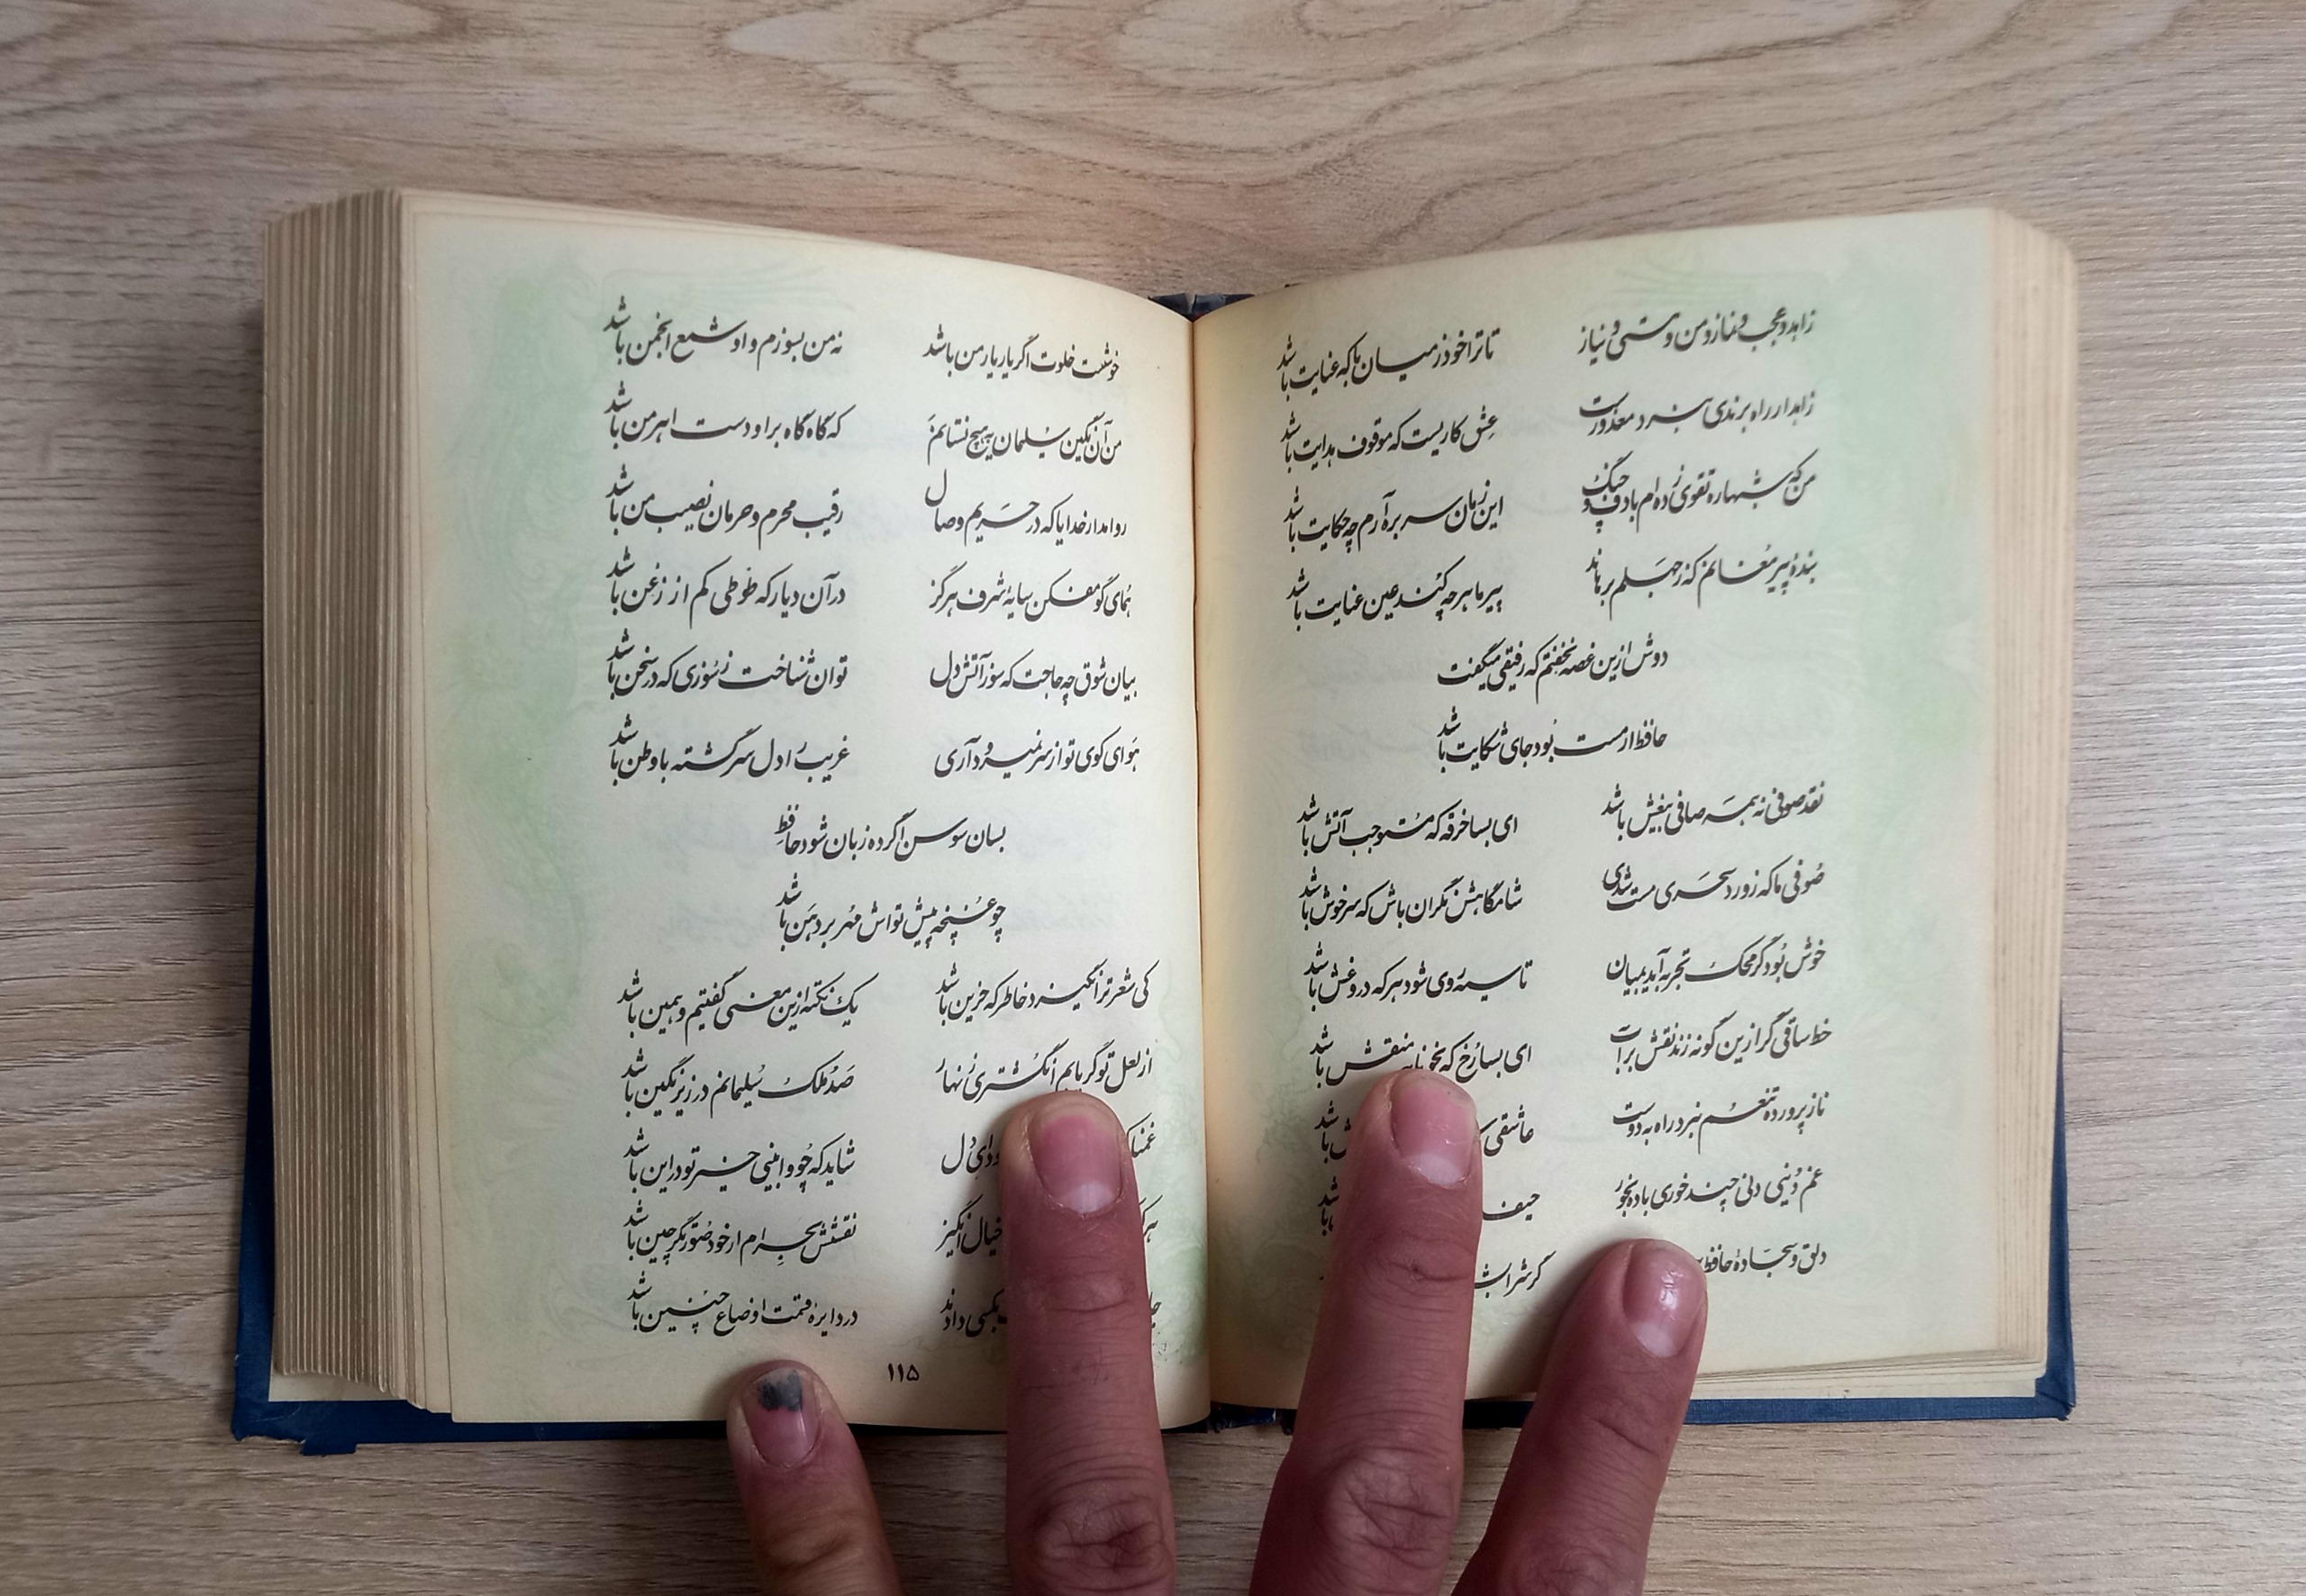 زاهد و عجب و نماز و من و مستی و نیاز تا ترا خود ز میان با که عنایت باشد
زاهد ار راه برندی نبرد معذورست عشق کاریست که موقوف هدایت باشد
من که شبها ره تقوی زده‌ام با دف و چنگ این زمان سر بره آرم چه حکایت باشد
بندهٔ پیر مغانم که ز جهلم برهاند پیر ما هر چه کند عین عنایت باشد
دوش ازین غصه نخفتم که رفیقی میگفت
حافظ ار مست بود جای شکایت باشد
نقد صوفی نه همه صافی بیغش باشد ای بسا خرقه که مستوجب آتش باشد
صوفی ما که ز ورد سحری مست شدی شامگاهش نگران باش که سرخوش باشد
خوش بود گر محک تجربه آید بمیان تا سیه روی شود هر که دروغش باشد
خط ساقی گر ازین گونه زند نقش بر آب ای بسا رخ که بخونابه منقش باشد
ناز پرورده تنعم نبرد راه به دوست عاشقی باشد
غم دنیی دنی چند خوری باده بخور حیف باشد
دلق و سجادهٔ حافظ گر شراب
خوشست خلوت اگر یار یار من باشد نه من بسوزم و او شمع انجمن باشد
من آن نگین سلیمان به هیچ نستانم که گاه گاه بر او دست اهرمن باشد
روا مدار خدایا که در حریم وصال رقیب محرم و حرمان نصیب من باشد
همای گو مفکن سایهٔ شرف هرگز در آن دیار که طوطی کم از زغن باشد
بیان شوق چه حاجت که سوز آتش دل توان شناخت ز سوزی که در سخن باشد
هوای کوی تو از سر نمیرود آری غریب را دل سرگشته با وطن باشد
بسان سوسن اگر ده زبان شود حافظ
چو غنچه پیش تواش مهر بر دهن باشد
کی شعر تر انگیزد خاطر که حزین باشد یک نکته ازین معنی گفتیم و همین باشد
از لعل تو گر یابم انگشتری زنهار صد ملک سلیمانم در زیر نگین باشد
غمناک ای دل شاید که چو وابینی خیر تو در این باشد
هر خیال انگیز نقشش بحرام ار خود صورتگر چین باشد
بکسی دادند در دایره قسمت اوضاع چنین باشد
۱۱۵